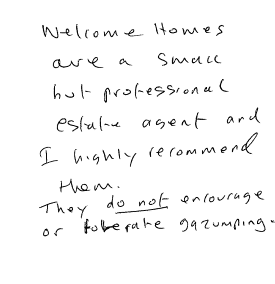 Welcome Homes
are a small
but professional
estate agent and
I highly recommend
them.
They do not encourage
or tolerate gazumping.